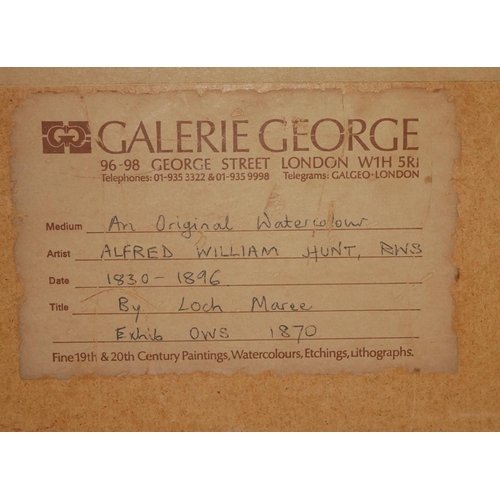 GALERIE GEORGE
96-98 GEORGE STREET LONDON W1H 5RJ
Telephones: 01-935 3322 & 01-935 9998 Telegrams: GALGEO-LONDON
Medium An Original Watercolour
Artist ALFRED WILLIAM HUNT, RWS
Date 1830-1896
Title By Loch Maree
Exhib OWS 1870
Fine 19th & 20th Century Paintings, Watercolours, Etchings, Lithographs.